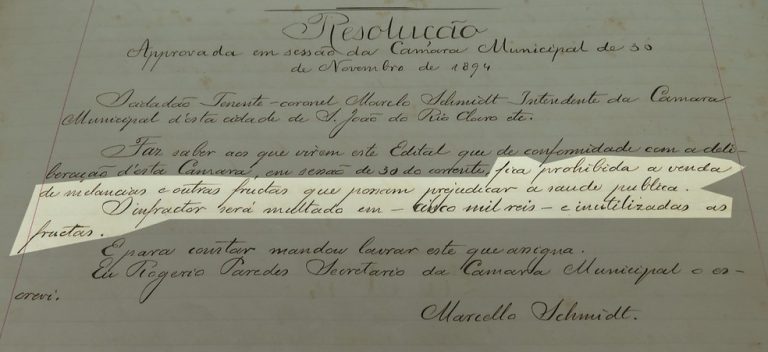 Resolucção
Approvada em sessão da Camara Municipal de 30
de Novembro de 1894
Cidadão Tenente-coronel Marcelo Schmidt Intendente da Camara
Municipal d'esta cidade de S. João do Rio Claro etc.
Faz saber aos que virem este Edital que de conformidade com a deli-
beração d'esta Camara, em sessão de 30 do corrente, fica prohibida a venda
de melancias e outras fructas que possam prejudicar a saude publica.
O infractor será multado em - cinco mil reis - e inutilizadas as
fructas.
E para constar mandou lavrar este que assigna.
Eu Rogerio Paredes Secretario da Camara Municipal o es-
crevi.
Marcello Schmidt.